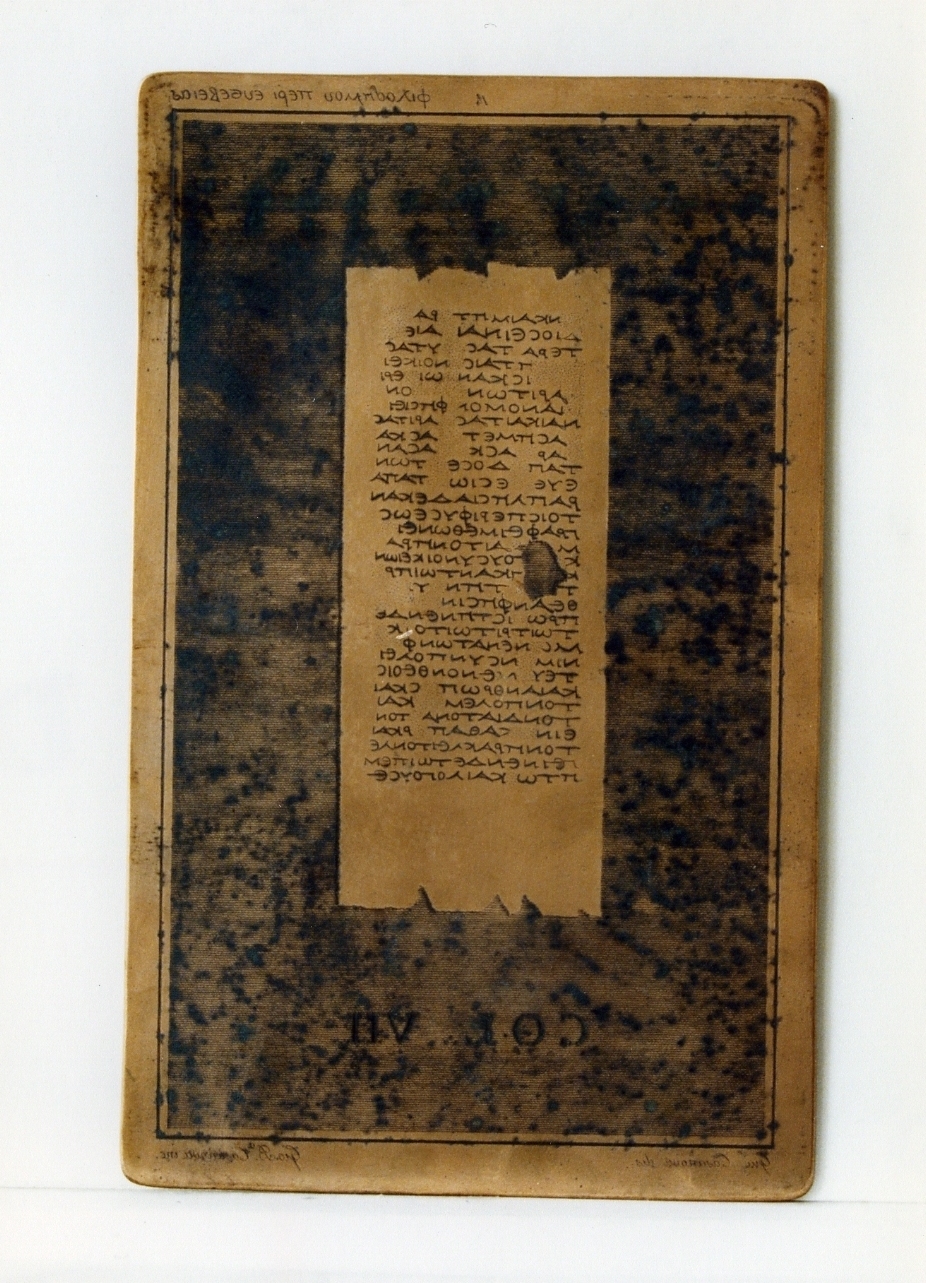 Ν φιλοδημου περι ευσεβειας
ΝΚΑΙΜΠΤ ΡΑ
ΔΙΟCΕΙΝΑΙ ΔΙΕ
ΤΕΡΑ ΤΑC ΥΤΑC
ΤΤΑΙC ΝΟΙΚΕΙ
ΙCΚΑΝ ΩΙ ΕΡΙ
ΑΡΙΤΩΝ ΟΝ
ΔΝΟΜΟΝ ΦΗCΙΕΙ
ΝΑΙΚΑΙΤΑC ΑΡΙΤΑC
ΑCΠΜΕΤ ΑCΚΑ
ΑΡ ΑCΚ ΑCΑΝ
ΤΑΠ ΔΟCΕ ΤΩΝ
ΕΥΕ ΕCΩΙC ΤΑΠΑ
ΡΑΠΛΗCΙΑΔΕΚΑΝ
ΤΟΙCΠΕΡΙΦΥCΕΩC
ΓΡΑΦΕΙΜΕΘΩΝΕΙ
ΑΙΤΟΝΗΡΑ
ΚΑ ΟΥCΥΝΟΙΚΕΙΩΝ
Τ ΤΚΑΝΤΩΙΠΡ
Τ ΤΗΝ Υ
ΘΕΑΝΦΗCΙΝ
ΠΡΩ ΙCΤΗΝΕΝΔΕ
ΤΩΙΤΡΙΤΩΙΤΟ Κ
ΝΕΝΑΤΩΝΦ
ΝΙΜ ΝCΥΝΠΟΛΕΙ
ΤΕΥ ΕΝΟΝΘΕΟΙC
ΚΑΙΑΝΘΡΩΠ CΚΑΙ
ΤΟΝΠΟΛΕΜ ΚΑΙ
ΤΟΝΔΙΑΤΟΝΑ ΤΟΝ
ΕΙΝ CΑΘΑΠ ΡΚΑΝ
ΤΟΝΗΡΑΚΛΕΙΤΟΝΛΕ
ΓΕΙΝΕΝΔΕΤΩΙΠΕΜ
ΠΤΩ ΚΑΙΛΟΓΟΥCΕ
COL VII
Casanova des.
Gio. B. Casanova inc.